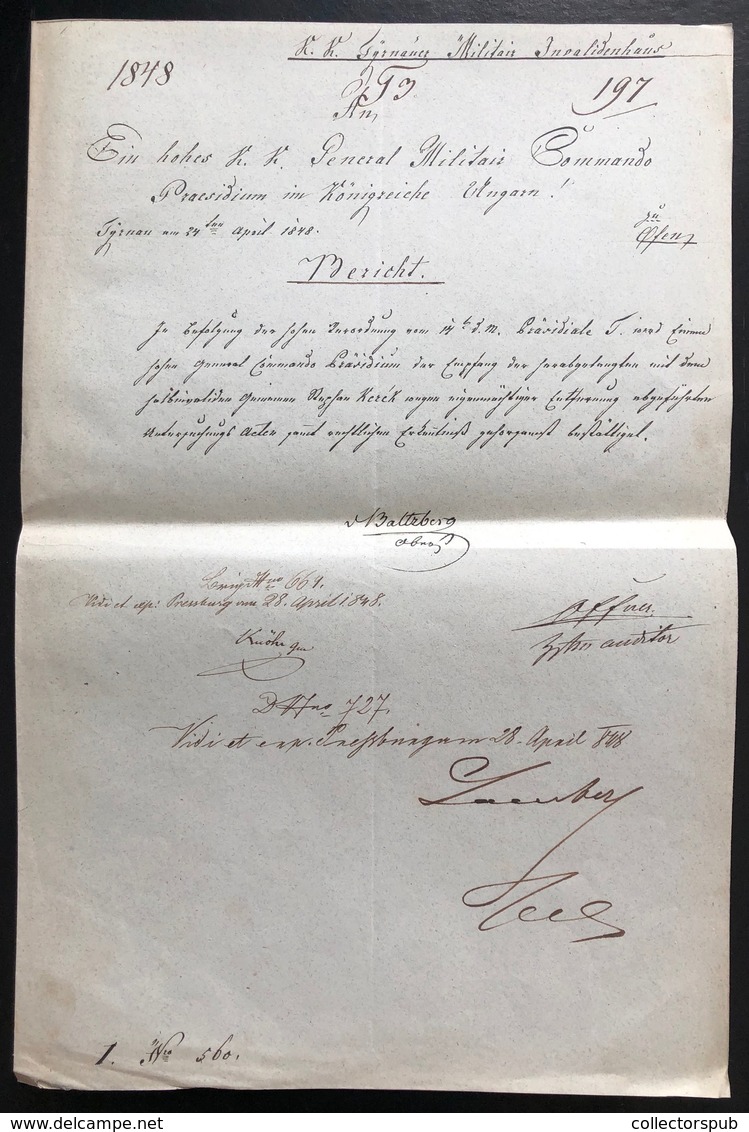 K. K. Tyrnauer Militair Invalidenhaus
1848 T3 197
An
Ein hohes K. K. General Militair Commando
Praesidium im Königreiche Ungarn!
Tyrnau am 24ten April 1848. zu
Ofen
Bericht.
In Befolgung der hohen Verordnung vom 14t d. M. Präsidiale T. wird Einem
hohen General Commando Präsidium der Empfang der herabgelangten mit dem
halbinvaliden Gemeinen Stephan Kerék wegen eigenmächtiger Entfernung abgeführten
Untersuchungs Acten sammt rechtlichen Erkentniß gehorsamst bestättiget.
v Baltzberg
Obrst
Brig. No 661.
Vidi et exp: Pressburg am 28. April 1848.
auditor
D No 727.
Vidi et exp. Preßburg am 28. April 848
1. No 560.
collectorspub